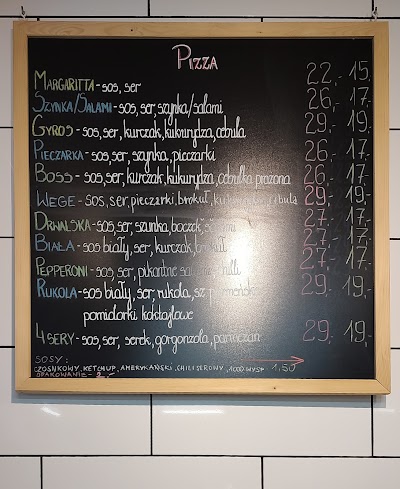 PIZZA
MARGARITTA - sos, ser 22,- 15,-
SZYNKA/SALAMI - sos, ser, szynka/salami 26,- 17,-
GYROS - sos, ser, kurczak, kukurydza, cebula 29,- 19,-
PIECZARKA - sos, ser, szynka, pieczarki 26,- 17,-
BOSS - sos, ser, kurczak, kukurydza, cebulka prażona 26,- 17,-
WEGE - sos, ser, pieczarki, brokuł, cebula 29,- 19,-
DRWALSKA - sos, ser, szynka, boczek, 27,- 17,-
BIAŁA - sos biały, ser, kurczak, 27,- 17,-
PEPPERONI - sos, ser, pikantne 27,- 17,-
RUKOLA - sos biały, ser, rukola, 29,- 19,-
pomidorki koktajlowe
4 SERY - sos, ser, serek, gorgonzola, parmezan 29,- 19,-
SOSY:
CZOSNKOWY, KETCHUP, AMERYKAŃSKI, CHILI SEROWY, 1000 WYSP - 1,50
OPAKOWANIE - 2,-